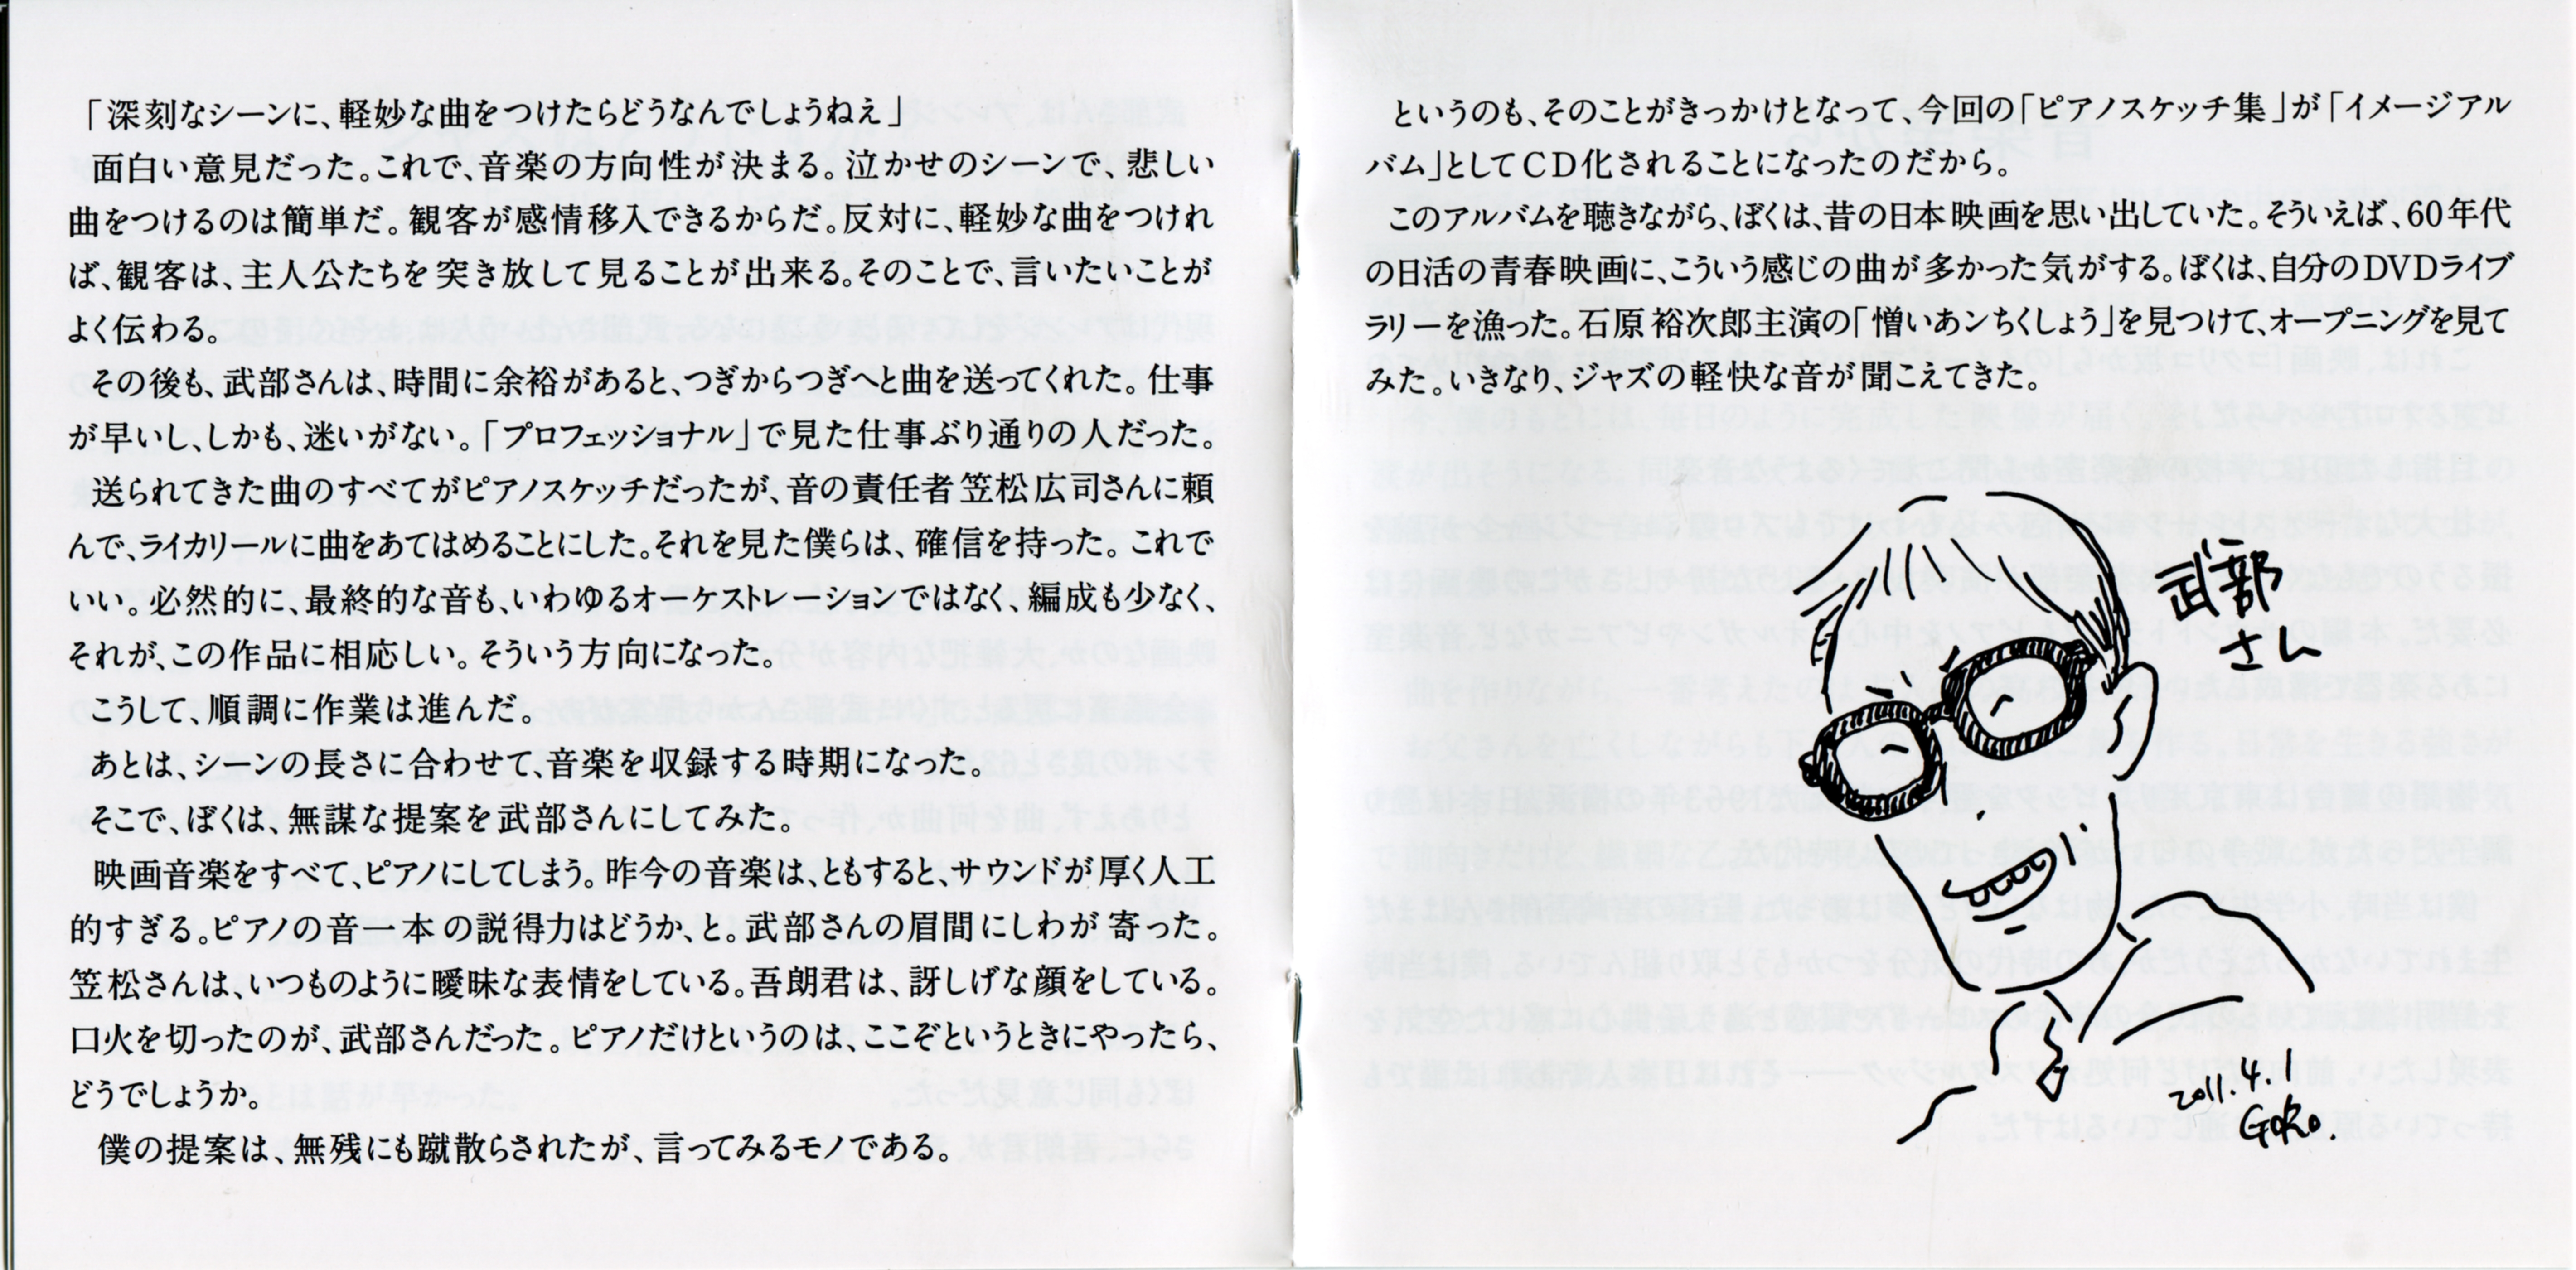 「深刻なシーンに、軽妙な曲をつけたらどうなんでしょうねえ」
面白い意見だった。これで、音楽の方向性が決まる。泣かせのシーンで、悲しい
曲をつけるのは簡単だ。観客が感情移入できるからだ。反対に、軽妙な曲をつけれ
ば、観客は、主人公たちを突き放して見ることが出来る。そのことで、言いたいことが
よく伝わる。
その後も、武部さんは、時間に余裕があると、つぎからつぎへと曲を送ってくれた。仕事
が早いし、しかも、迷いがない。「プロフェッショナル」で見た仕事ぶり通りの人だった。
送られてきた曲のすべてがピアノスケッチだったが、音の責任者笠松広司さんに頼
んで、ライカリールに曲をあてはめることにした。それを見た僕らは、確信を持った。これで
いい。必然的に、最終的な音も、いわゆるオーケストレーションではなく、編成も少なく、
それが、この作品に相応しい。そういう方向になった。
こうして、順調に作業は進んだ。
あとは、シーンの長さに合わせて、音楽を収録する時期になった。
そこで、ぼくは、無謀な提案を武部さんにしてみた。
映画音楽をすべて、ピアノにしてしまう。昨今の音楽は、ともすると、サウンドが厚く人工
的すぎる。ピアノの音一本の説得力はどうか、と。武部さんの眉間にしわが寄った。
笠松さんは、いつものように曖昧な表情をしている。吾朗君は、訝しげな顔をしている。
口火を切ったのが、武部さんだった。ピアノだけというのは、ここぞというときにやったら、
どうでしょうか。
僕の提案は、無残にも蹴散らされたが、言ってみるモノである。
というのも、そのことがきっかけとなって、今回の「ピアノスケッチ集」が「イメージアル
バム」としてCD化されることになったのだから。
このアルバムを聴きながら、ぼくは、昔の日本映画を思い出していた。そういえば、60年代
の日活の青春映画に、こういう感じの曲が多かった気がする。ぼくは、自分のDVDライブ
ラリーを漁った。石原裕次郎主演の「憎いあンちくしょう」を見つけて、オープニングを見て
みた。いきなり、ジャズの軽快な音が聞こえてきた。
武部
さん
2011.4.1
GORO.